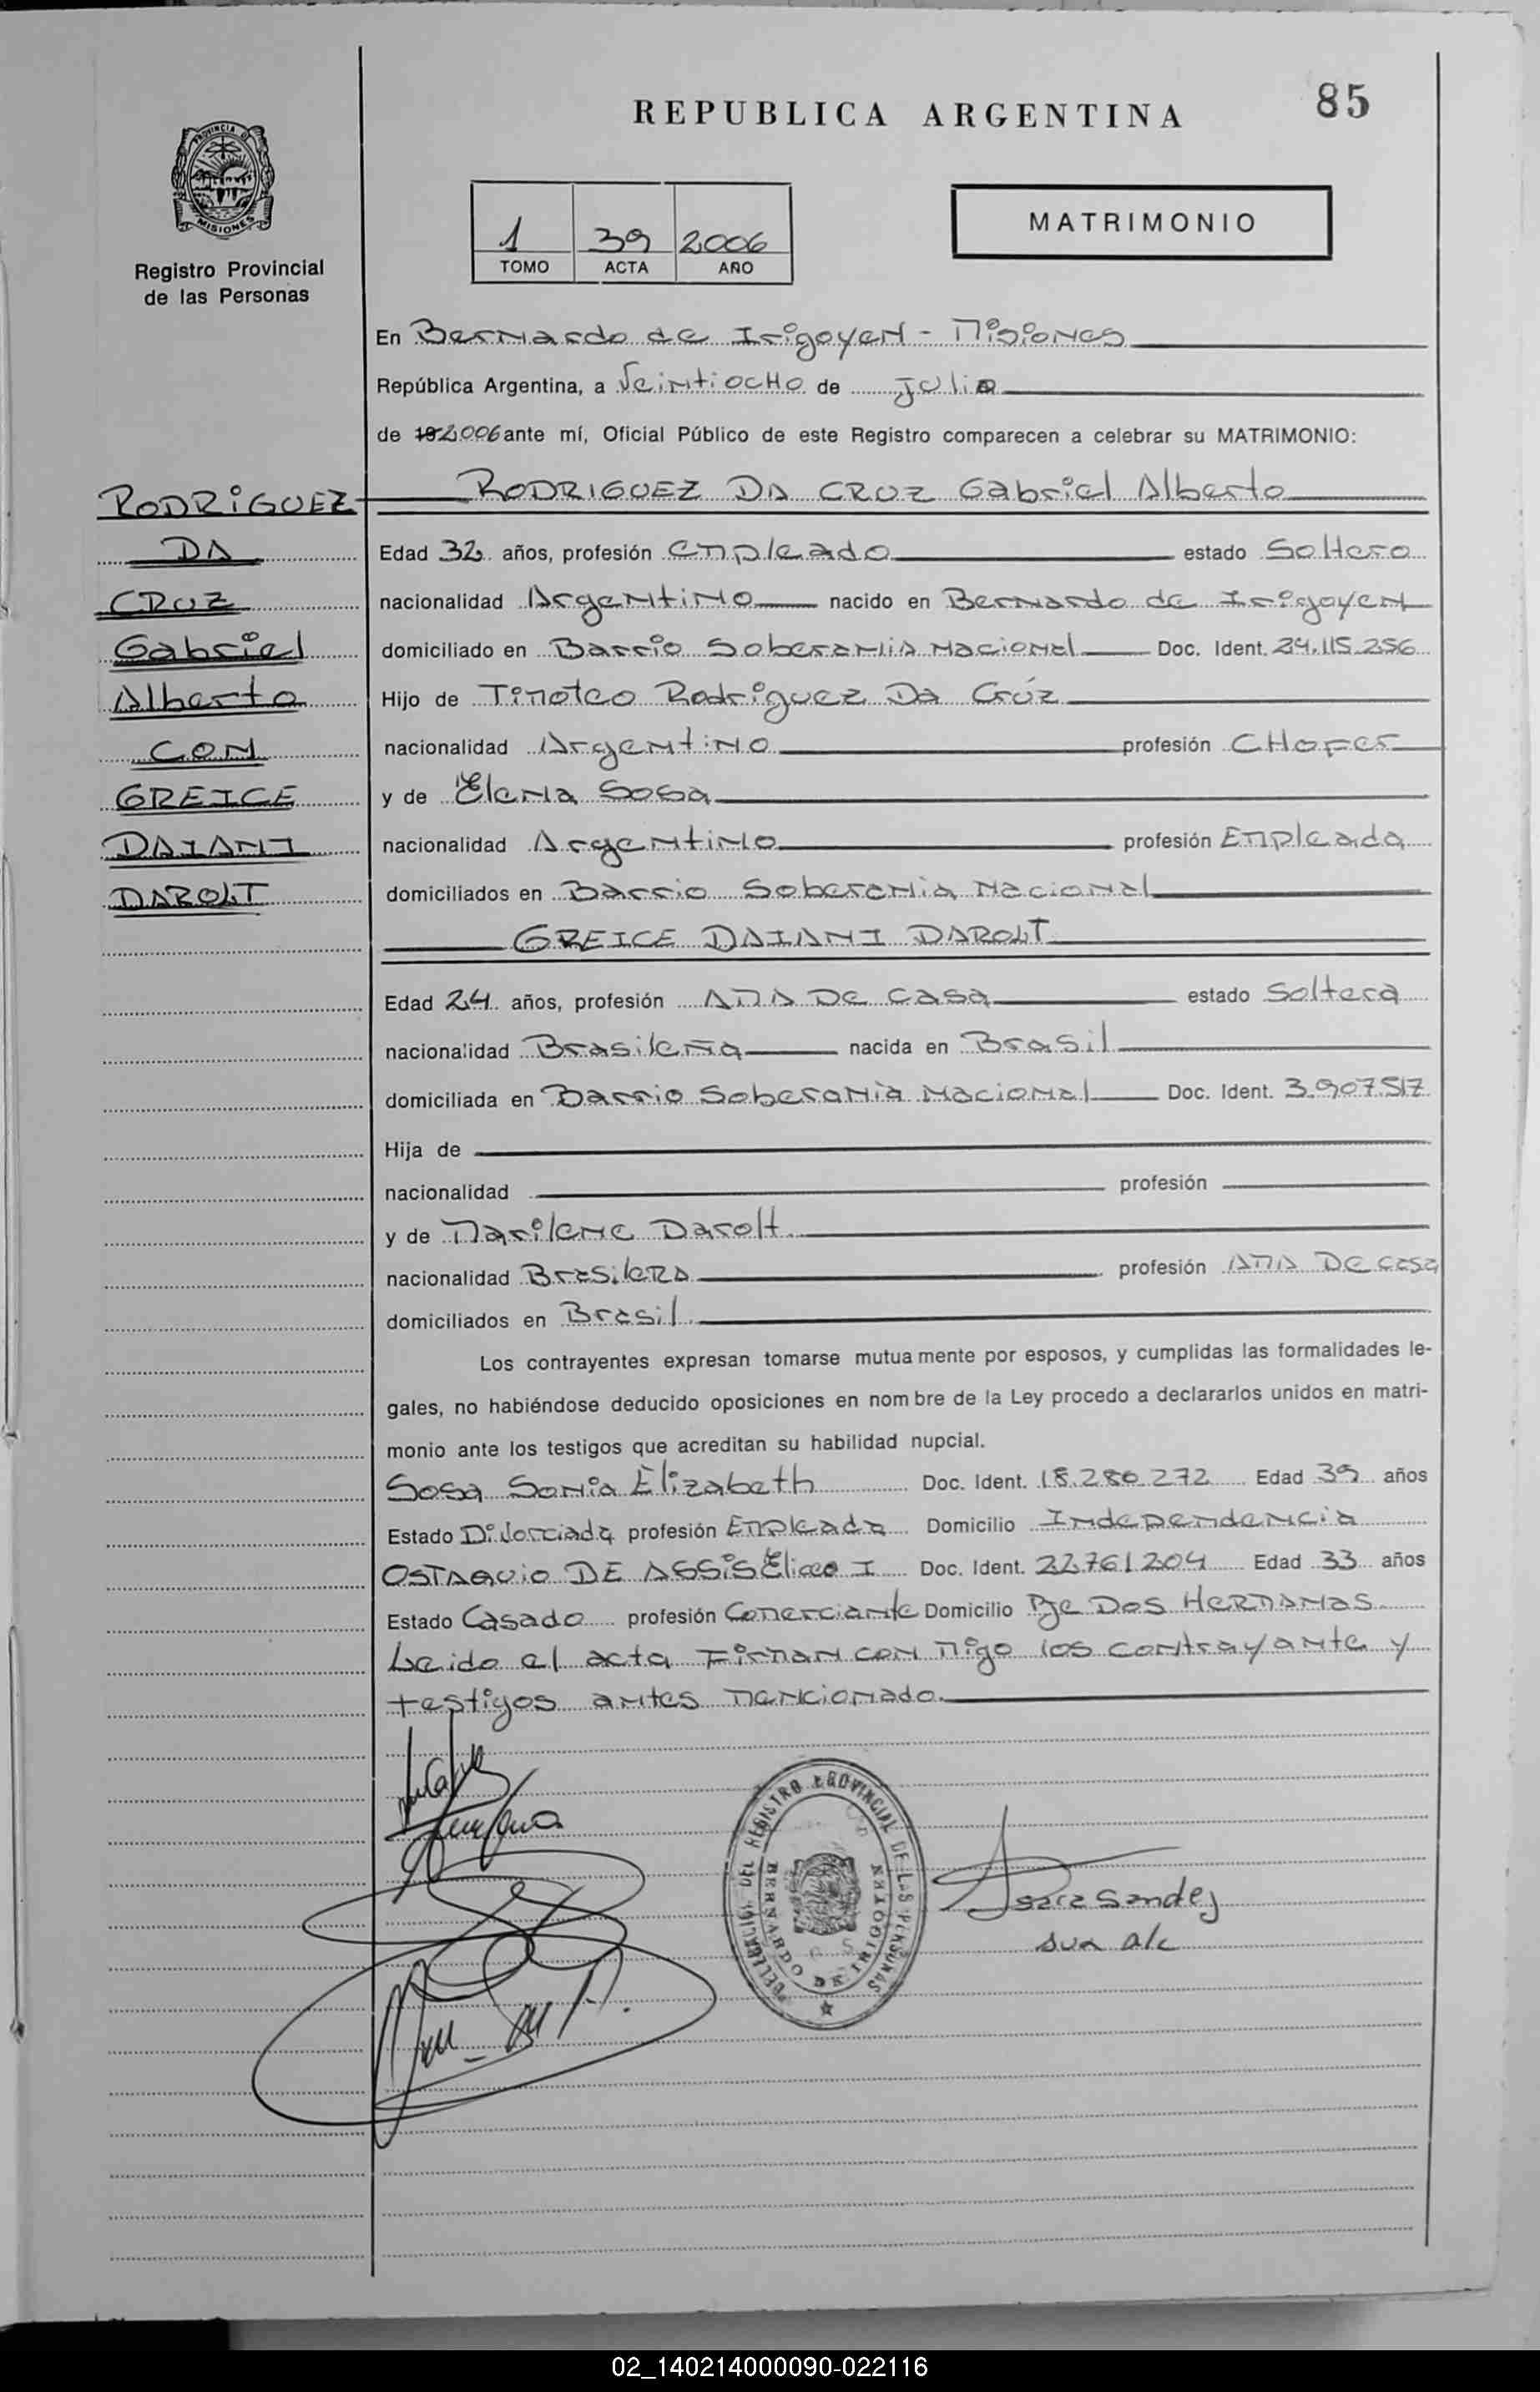 85
REPUBLICA ARGENTINA
PROVINCIA DE
MISIONES
Registro Provincial
de las Personas
1 39 2006
TOMO ACTA AÑO
MATRIMONIO
En Bernardo de Irigoyen - Misiones
República Argentina, a Veintiocho de Julio
de 19 2006 ante mí, Oficial Público de este Registro comparecen a celebrar su MATRIMONIO:
RODRIGUEZ
DA
CRUZ
Gabriel
Alberto
CON
GREICE
DAIANI
DAROLT
RODRIGUEZ DA CRUZ Gabriel Alberto
Edad 32 años, profesión Empleado estado Soltero
nacionalidad Argentino nacido en Bernardo de Irigoyen
domiciliado en Barrio Soberania Nacional Doc. Ident. 24.115.256
Hijo de Timoteo Rodriguez Da Crúz
nacionalidad Argentino profesión CHofer
y de Elena Sosa
nacionalidad Argentino profesión Empleada
domiciliados en Barrio Soberania Nacional
GREICE DAIANI DAROLT
Edad 24 años, profesión AMA DE CASA estado Soltera
nacionalidad Brasileña nacida en Brasil
domiciliada en Barrio Soberanìa Nacional Doc. Ident. 3.907.517
Hija de
nacionalidad profesión
y de Marilene Darolt.
nacionalidad BrasileRA profesión AMA DE casa
domiciliados en Brasil.
Los contrayentes expresan tomarse mutua mente por esposos, y cumplidas las formalidades le-
gales, no habiéndose deducido oposiciones en nom bre de la Ley procedo a declararlos unidos en matri-
monio ante los testigos que acreditan su habilidad nupcial.
Sosa Sonia Elizabeth Doc. Ident. 18.280.272 Edad 39 años
Estado Divorciada profesión Empleada Domicilio Independencia
OSTAQUIO DE ASSIS Eliceo I Doc. Ident. 22.761.204 Edad 33 años
Estado Casado profesión Comerciante Domicilio Pje Dos HERMANAS
Leido el acta Firman con migo los contrayante y
testigos antes mencionado.
DEL REGISTRO PROVINCIAL DE LAS PERSONAS
BERNARDO DE IRIGOYEN
02_140214000090-022116